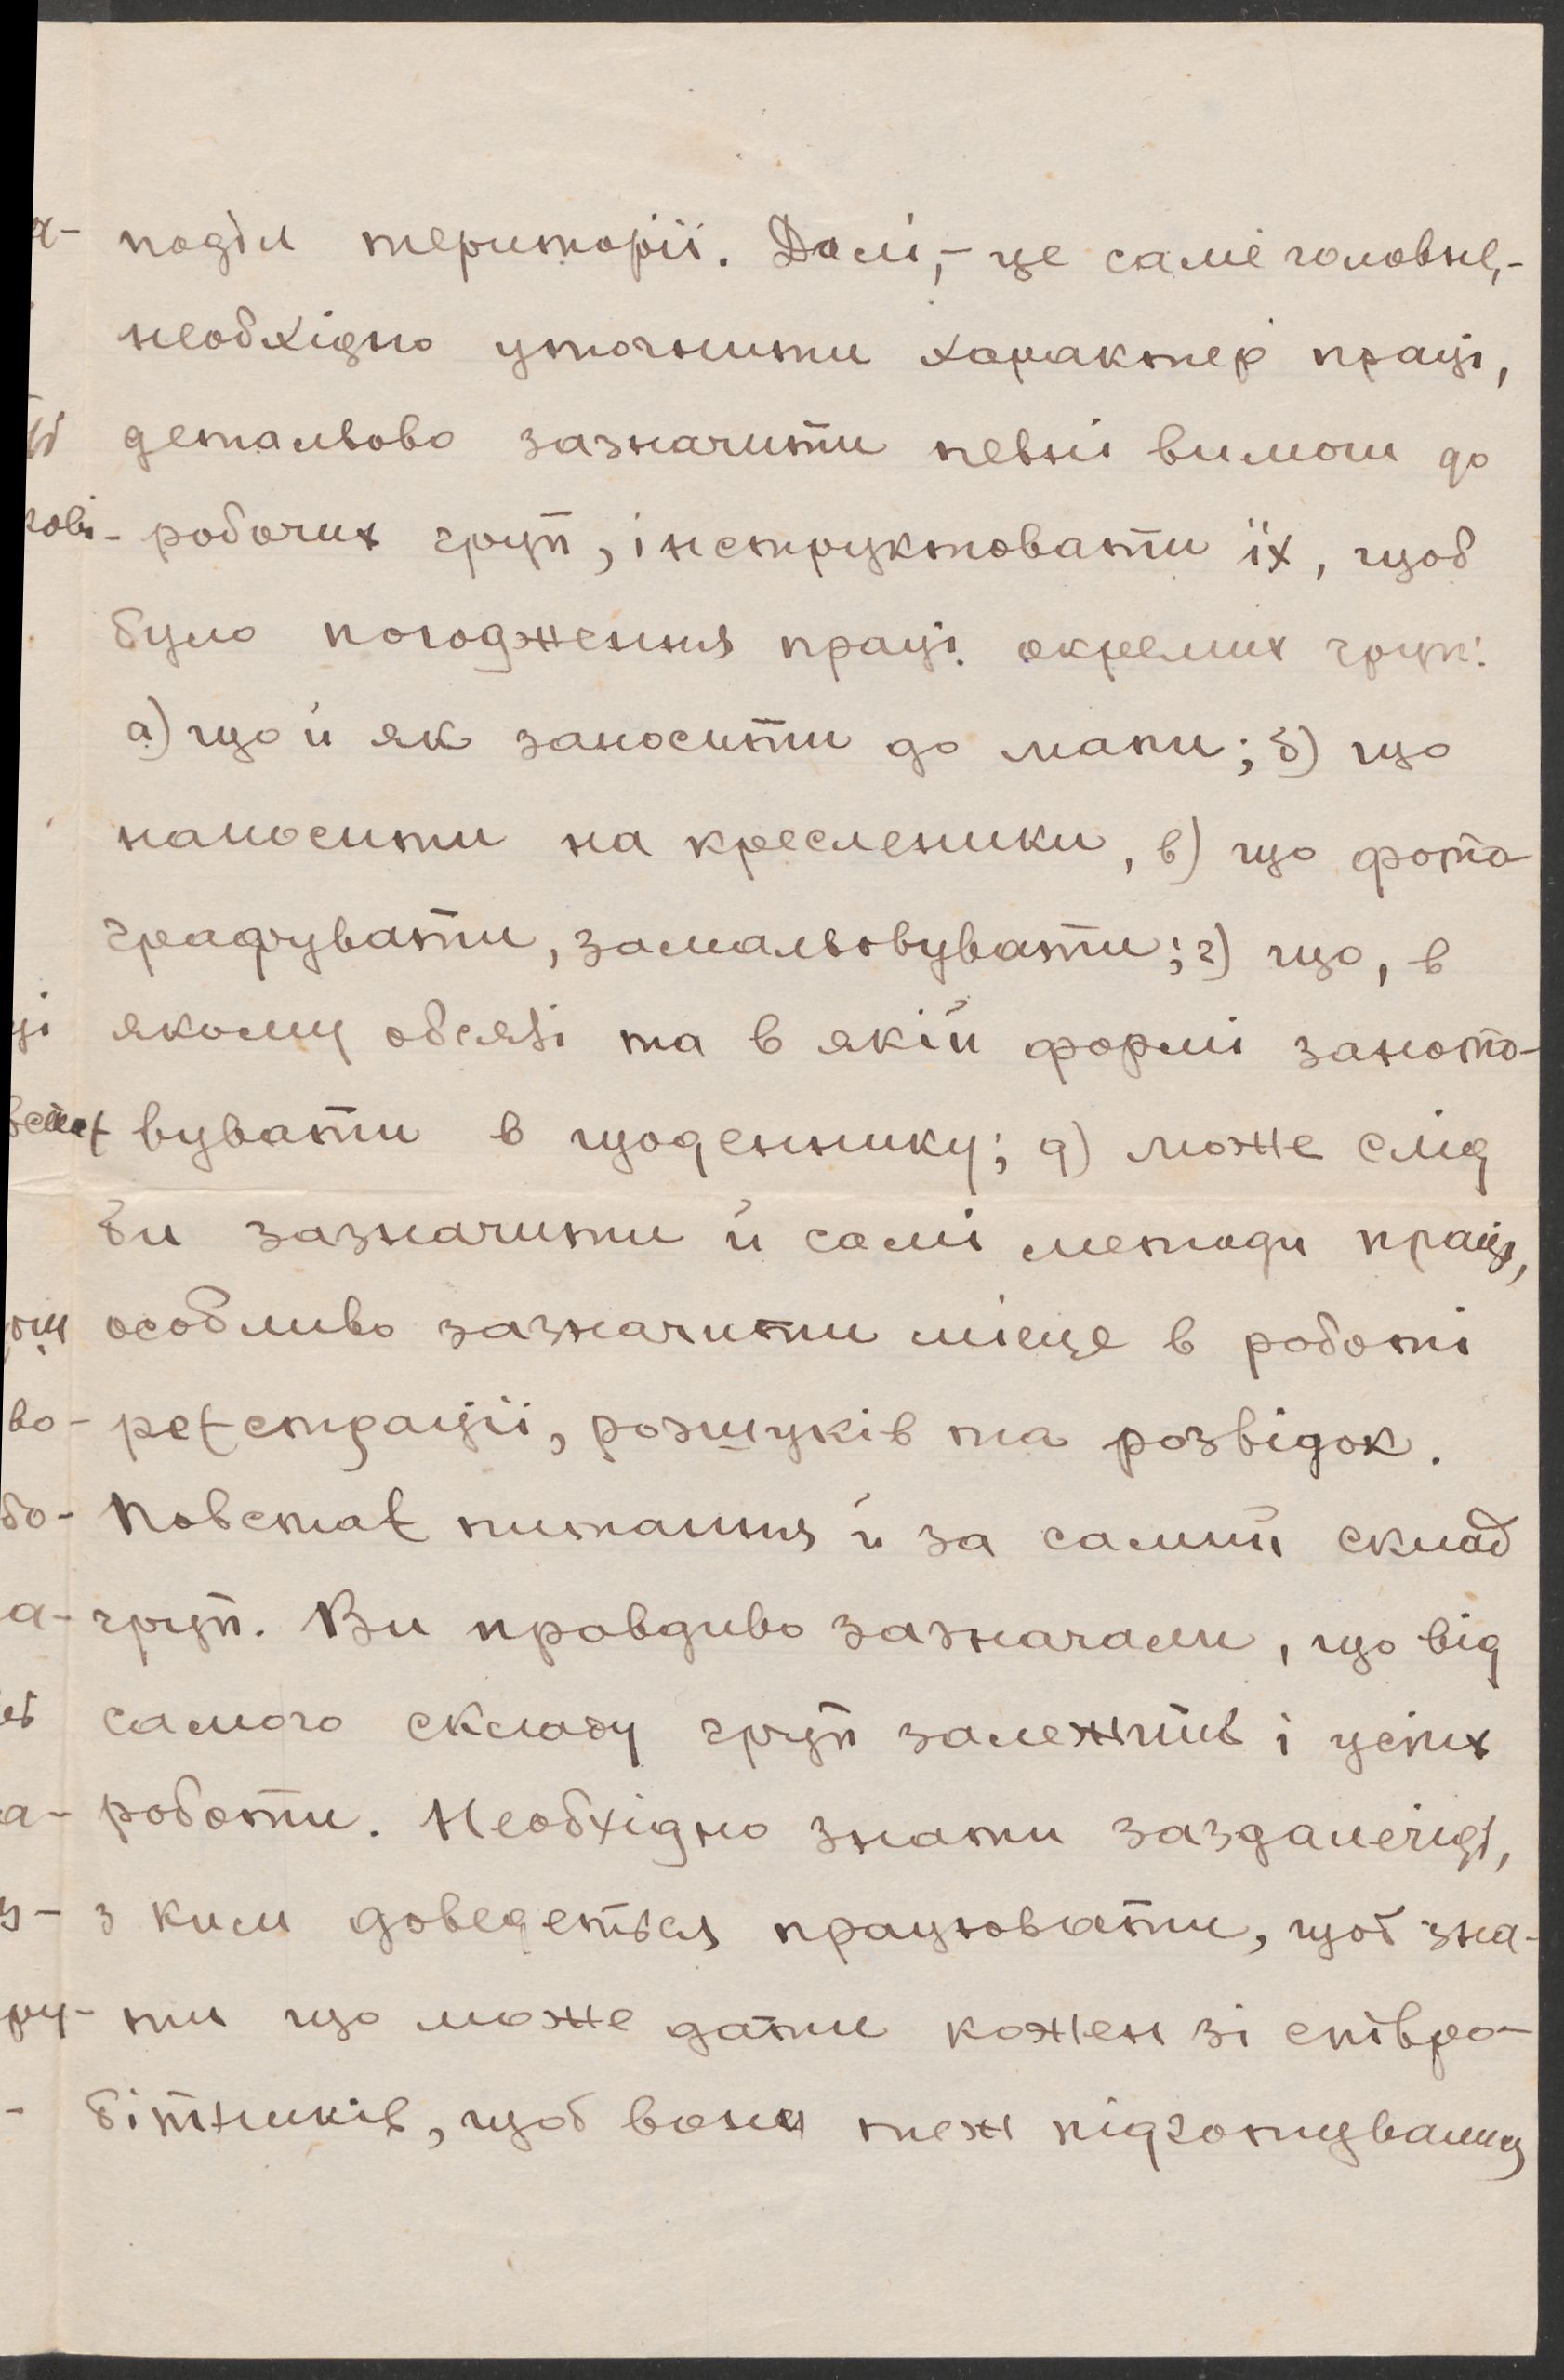 поділ території. Далі,- це саме головне,-
необхідно уточнити характер праці,
детальово зазначити певні вимоги до
робочих груп, інструктовати їх, щоб
було погодження праці окремих груп:
а) що й як заносити до мапи; б) що
наносити на кресленики, в) що фото-
графувати, замальовувати; г) що, в
якому обсязі та в якій формі заното-
вувати в щоденнику; д) може слід
би зазначити й самі методи праці,
особливо зазначити місце в роботі
реєстрації, розшуків та розвідок.
Повстає питання й за самий склад
груп. Ви правдиво зазначали, що від
самого складу груп залежить і успіх
роботи. Необхідно знати заздалегідь,
з ким доведеться працювати, щоб зна-
ти що може дати кожен зі співро-
бітників, щоб вони теж підготування